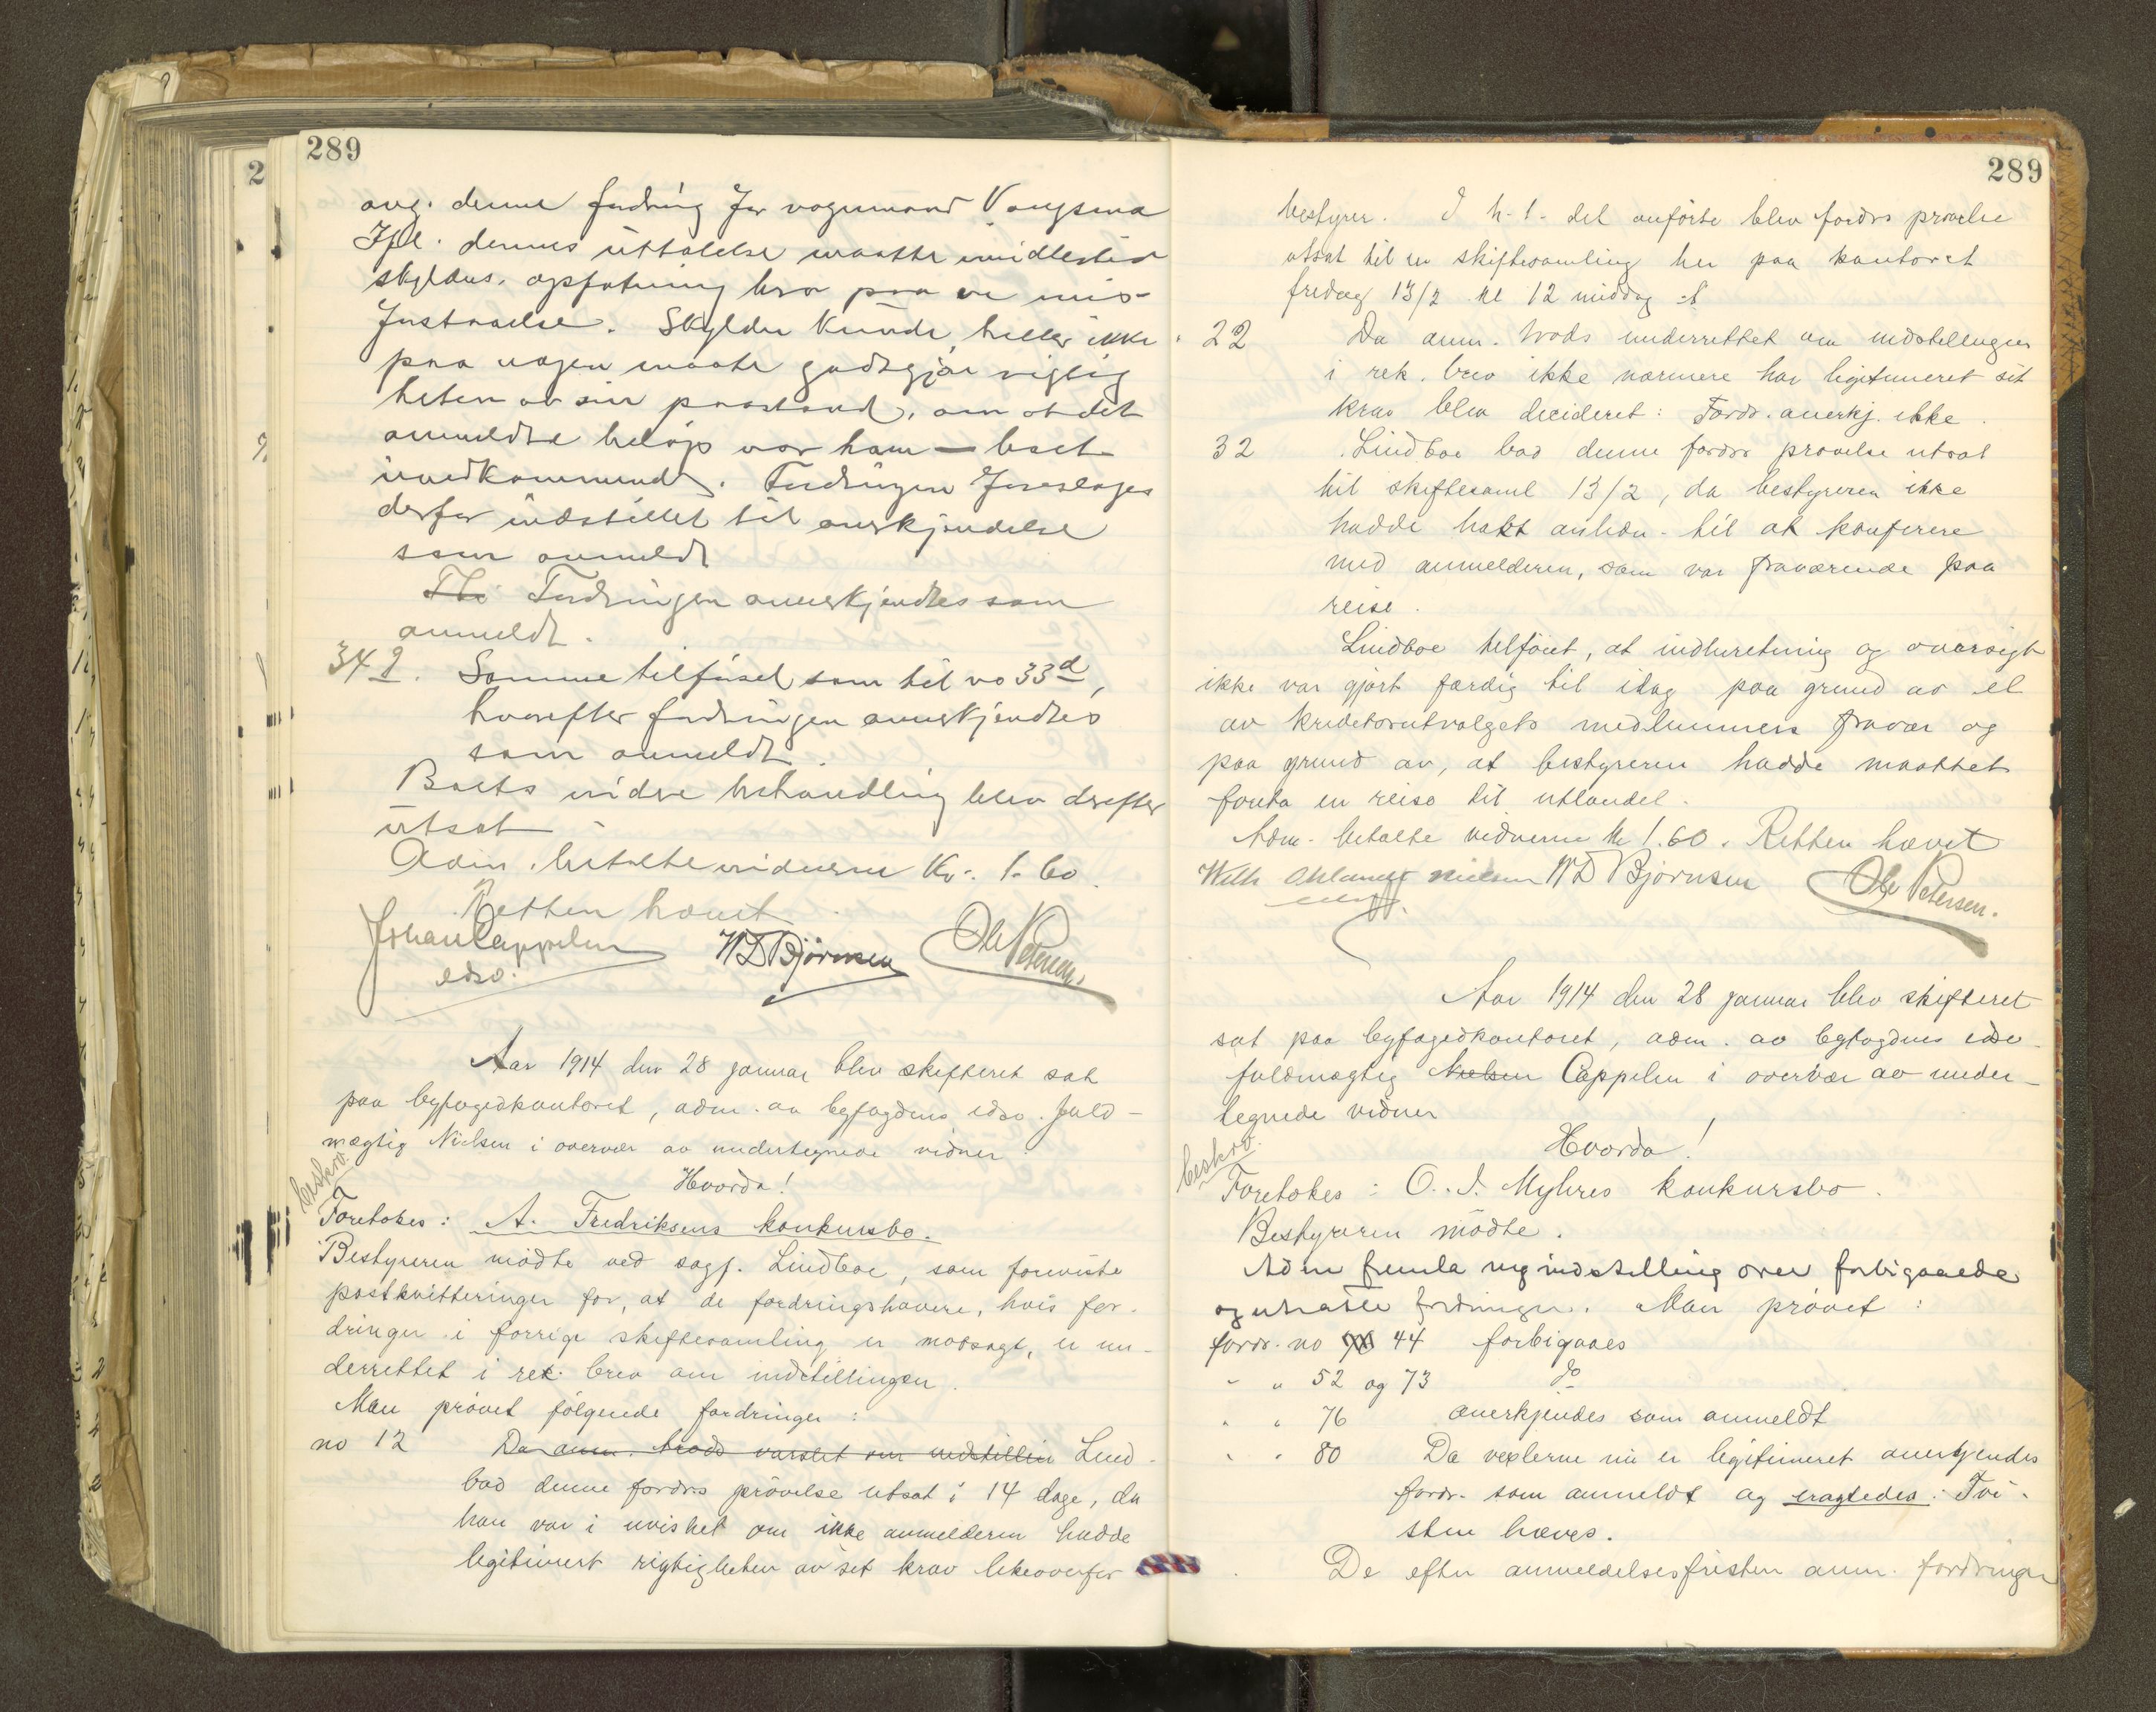 289
ang. denne fordring for vognmand Vongsma
Ifl. dennes uttalelse maatte imidlertid
skyldns. opfatning bero paa en mis-
forstaaelse. Skyldn kunde heller ikke
paa nogen maate godtgjøre rigtig
heten av sin paastand, om at det
anmeldte beløp var ham - boet
uvedkommende. Fordringen foreslages
derfor indstillet til anerkjendelse
som anmeldt
Fordringen anerkjendtes som
anmeldt.
34 Samme tilførsel som til no 33d,
hvorefter fordringen anerkjendtes
som anmeldt.
Boets videre behandling blev derefter
utsat
Adm. betalte vidnerne Kr. 1.60.
Retten hævet
Johan Cappelen WD Bjørnsen Ole Petersen.
edsv.
Aar 1914 den 28 januar blev skifteret sat
paa byfogedkontoret, adm. av byfogdens edsv. fuld-
mægtig Nielsen i overvær av undertegnede vidner
Hvorda!
beskrv.
Foretokes: A. Fredriksens konkursbo.
Bestyreren mødte ved sagf. Lindboe, som foreviste
postkvitteringer for, at de fordringshavere, hvis for-
dringer i forrige skiftesamling er motsagt, er un-
derrettet i rek. brev om indstillingen.
Man prøvet følgende fordringer:
no 12 Da anm. trods varslet om indstillin Lind-
bad denne fordrs prøvelse utsat i 14 dage, da
han var i uvishet om ikke anmelderen hadde
legitimert rigtigheten av sit krav likeoverfor
289
bestyrer. I h. t. det anførte blev fordrs prøvelse
utsat til en skiftesamling her paa kontoret
fredag 13/2 kl 12 middag
22 Da anm. trods underrettet om indstillingen
i rek. brev ikke nærmere har legitimeret sit
krav blev decideret: Fordr. anerkj. ikke.
32 Lindboe bad denne fordrs prøvelse utsat
til skiftesaml 13/2, da bestyreren ikke
hadde hatt anledn. til at konferere
med anmelderen, som var fraværende paa
reise.
Lindboe tilføiet, at indberetning og oversigt
ikke var gjort færdig til idag paa grund av et
av kreditorutvalgets medlemmers fravær og
paa grund av, at bestyreren hadde maattet
foreta en reise til utlandet.
Adm. betalte vidnerne Kr 1.60. Retten hævet
Nielsen WD Bjørnsen Ole Petersen.
Aar 1914 den 28 januar blev skifteret
sat paa byfogedkontoret, adm. av byfogdens edsv.
fuldmægtig Nielsen Cappelen i overvær av under-
tegnede vidner
Hvorda!
beskrv.
Foretokes: O. I. Myhres konkursbo.
Bestyreren mødte.
Adm fremla ny indstilling over forbigaaede
og utsatte fordringer. Man prøvet:
fordr. no 44 forbigaaes
" " 52 og 73 do
" " 76 anerkjendes som anmeldt
" " 80 Da vexlerne nu er legitimeret anerkjendes
fordr. som anmeldt og eragtedes: Tvi-
sten hæves.
De efter anmeldelsesfristen anm. fordringer